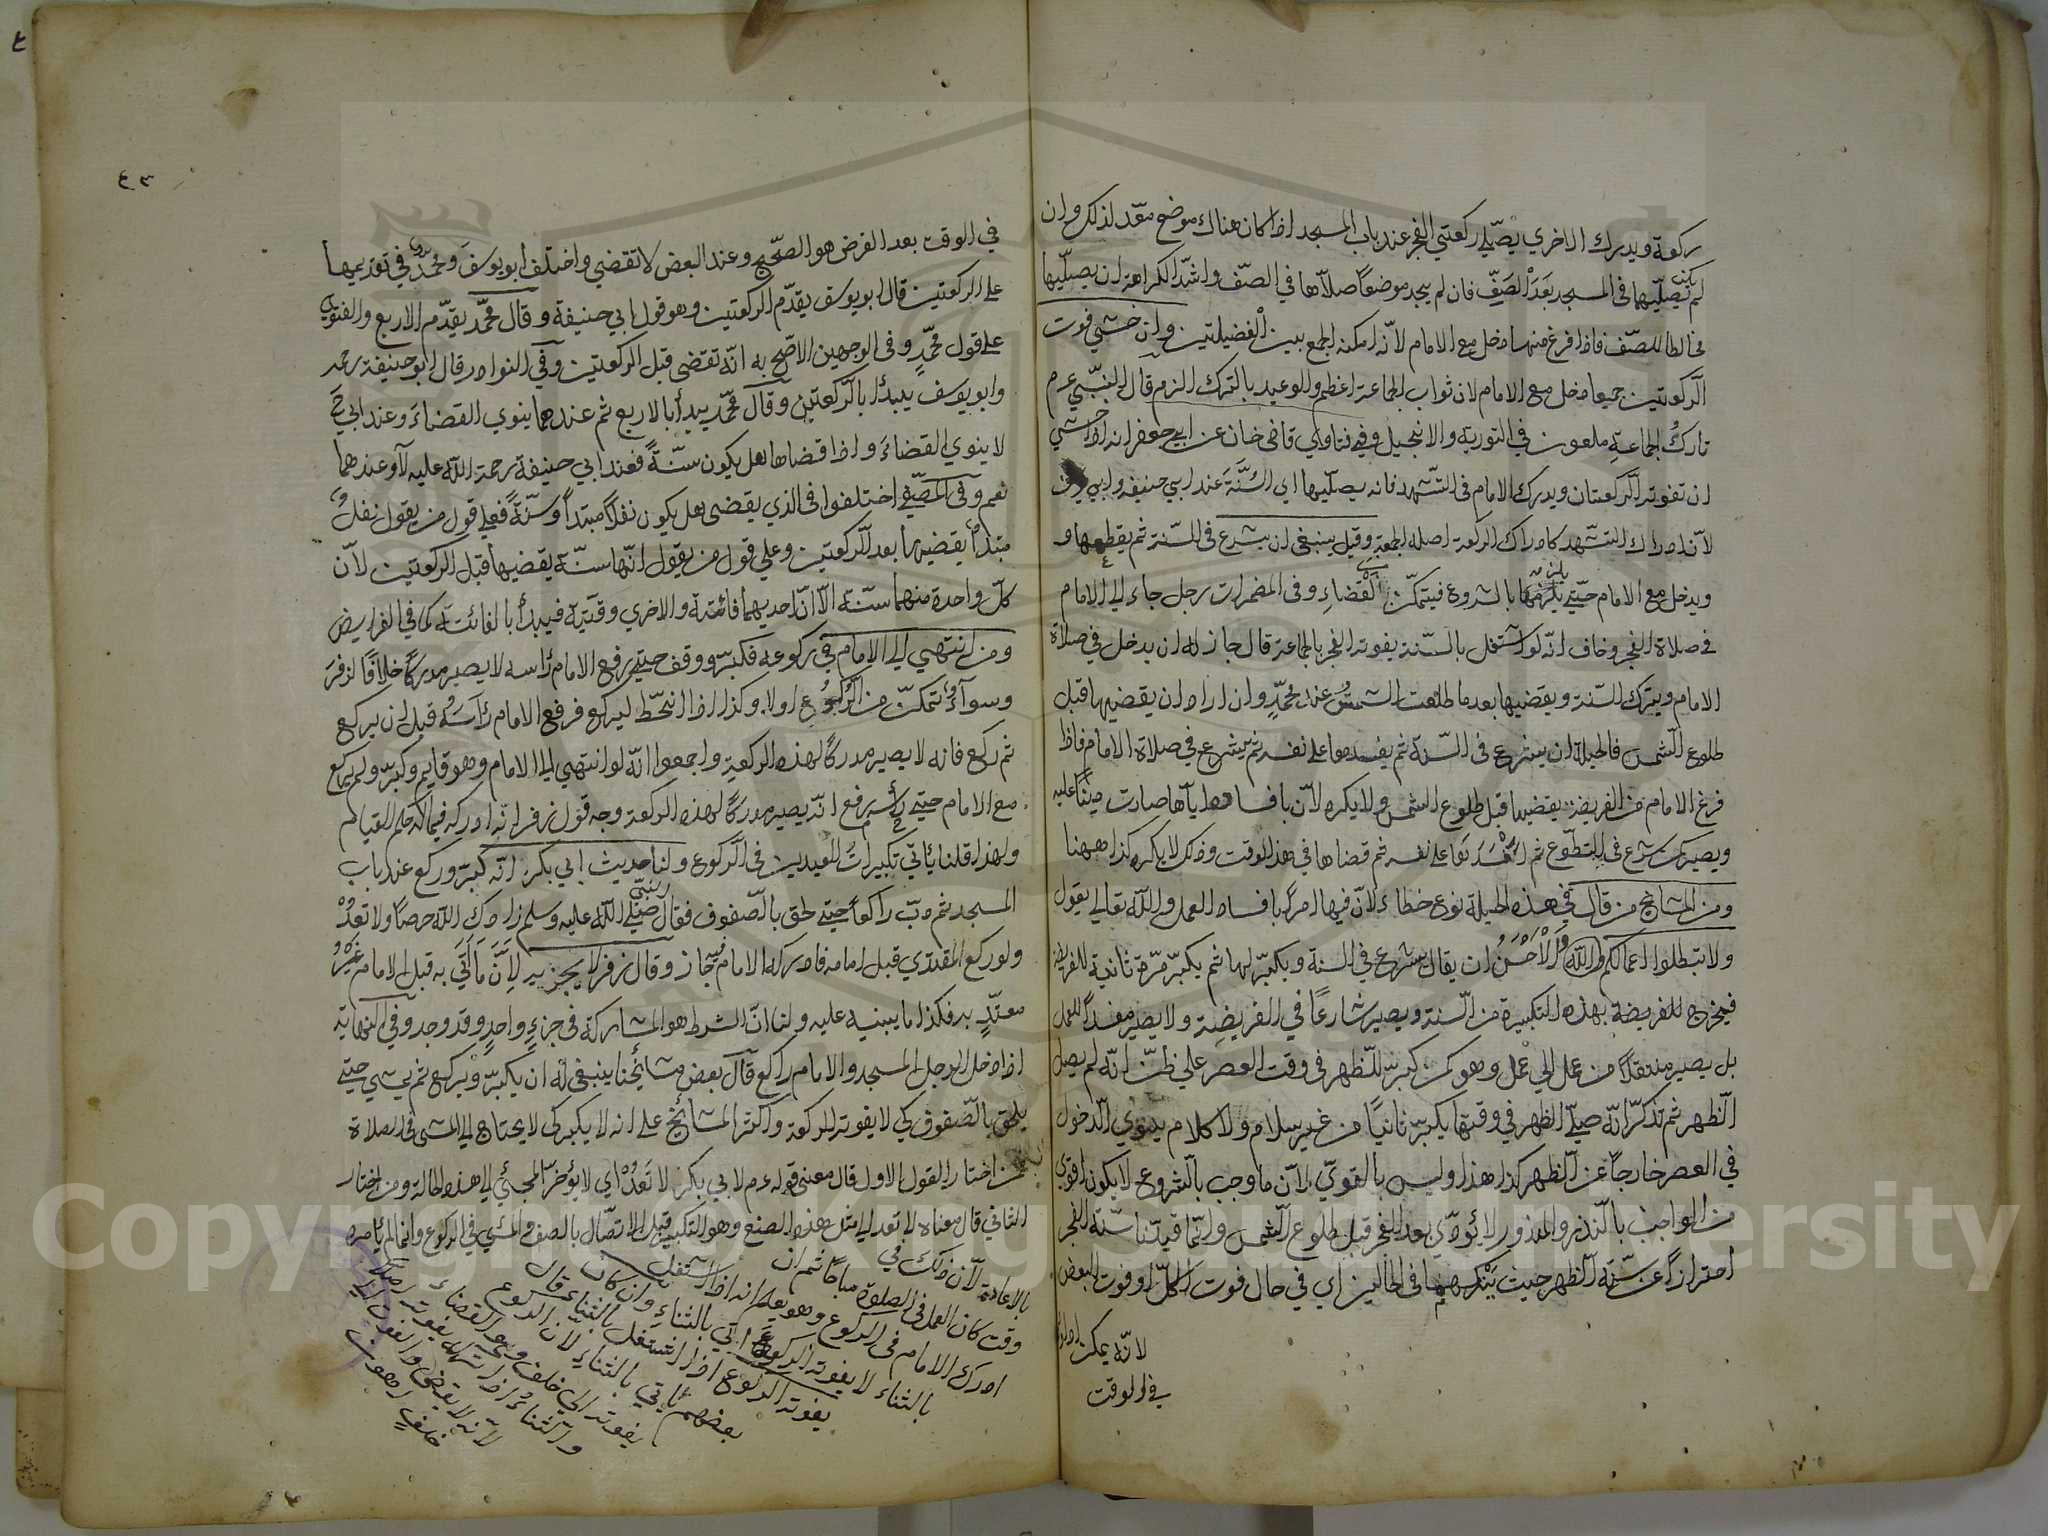 ركعة ويدرك الاخري يصلي ركعتي الفجر عند باب المسجد اذا كان هناك موضع معد لذلك وان
لم يكن يصليهما في المسجد بعد الصف فان لم يجد موضعا صلاها في الصف واشد الكراهة ان يصليها
مخالطا للصف فاذا فرغ منها دخل مع الامام لانه امكنه الجمع بين الفضيلتين وان خشي فوت
الركعتين جميعا دخل مع الامام لان ثواب الجماعة اعظم والوعيد بالترك الزم قال النبي عم
تارك الجماعة ملعون في التورية والانجيل وفي فتاوي قاضي خان عن ابي جعفر انه اذا خشي
ان تفوته الركعتان ويدرك الامام في التشهد فانه يصليها اي السنة عند ابي حنيفة وابي يوسف
لان ادراك التشهد كادراك الركعة اصله الجمعة وقيل ينبغي ان يشرع في السنة ثم يقطعها و
ويدخل مع الامام حتى يلزمه بالشروع فيتمكن من القضاء وفي المضمرات رجل جاء الي الامام
في صلاة الفجر وخاف انه لو اشتغل بالسنة يفوته الفجر بالجماعة قال جاز له ان يدخل في صلاة
الامام ويترك السنة ويقضيها بعد ما طلعت الشمس عند محمد وان اراد ان يقضيها قبل
طلوع الشمس فالحيلة ان يشرع في السنة ثم يفسدها على نفسه ثم يشرع في صلاة الامام فاذا
فرغ الامام من الفريضة يقضيها قبل طلوع الشمس ولا يكره لان بافساد اياها صارت دينا عليه
ويصير كمن شرع في التطوع ثم افسدها على نفسه ثم قضاها في هذا الوقت وذلك لا يكره كذا ههنا
ومن المشايخ من قال في هذه الحيلة نوع خطاء لان فيها امرا بافساد العمل والله تعالي يقول
ولا تبطلوا اعمالكم والله والاحسن ان يقال يشرع في السنة ويكبر لها ثم يكبر مرة ثانية للفريضة
فيخرج للفريضة بهذه التكبيرة من السنة ويصير شارعا في الفريضة ولا يصير مفسدا للعمل
بل يصير منتقلا من عمل الي عمل وهو كمن كبر للظهر في وقت العصر علي ظن انه لم يصل
الظهر ثم تذكر انه صلي الظهر في وقتها يكبر ثانيا من غير سلام ولا كلام ينوي الدخول
في العصر خارجا عن الظهر كذا هذا وليس بالقوي لان ما وجب بالشروع لا يكون اقوي
من الواجب بالنذر والمنذور لا يؤدي بعد الفجر قبل طلوع الشمس وانما قيدنا سنة الفجر
احترازا عن سنة الظهر حيث يتركهما في الحالين اي في حال فوت الكل او فوت البعض
لانه يمكن اداؤ
في الوقت
٤٣
في الوقت بعد الفرض هو الصحيح وعند البعض لا تقضي واختلف ابو يوسف ومحمد في تقديمها
على الركعتين قال ابو يوسف يقدم الركعتين وهو قول ابي حنيفة وقال محمد يقدم الاربع والفتوي
على قول محمد وفي الوجهين الاصح به انه تقضي قبل الركعتين وفي النوادر قال ابو حنيفة رحمه
وابو يوسف يبدأ بالركعتين وقال محمد يبدأ بالاربع ثم عندهما ينوي القضاء وعند ابي ح
لا ينوي القضاء واذا قضاها هل يكون سنة فعند ابي حنيفة رحمة الله عليه لا وعندهما
نعم وفي المصفي اختلفوا في الذي يقضي هل يكون نفلا مبتدأ او سنة فعلي قول من يقول نفل
مبتدأ يقضيها بعد الركعتين وعلي قول من يقول انها سنة يقضيها قبل الركعتين لان
كل واحدة منهما سنة الا ان احديهما فائتة والاخري وقتية فيبدأ بالفائتة كما في الفرايض
ومن انتهي الي الامام في ركوعه فكبر ووقف حتي رفع الامام رأسه لا يصير مدركا خلافا لزفر
وسواء تمكن من الركوع او لا وكذا اذا انحط ليركع فرفع الامام رأسه قبل ان يركع
ثم ركع فانه لا يصير مدركا لهذه الركعة واجمعوا انه لو انتهي الي الامام وهو قايم وكبر ولم يركع
مع الامام حتي رفع رأسه انه يصير مدركا لهذه الركعة وجه قول زفر انه ادركه فيما له حكم القيام
ولهذا قلنا يأتي تكبيرات العيدين في الركوع ولنا حديث ابي بكر انه كبر وركع عند باب
المسجد ثم دب راكعا حتي لحق بالصفوف فقال النبي صلي الله عليه وسلم زادك الله حرصا ولا تعد
ولو ركع المقتدي قبل امامه فادركه الامام فيه جاز وقال زفر لا يجزيه لان ما اتي به قبل الامام غير
معتد به فكذا ما يبنيه عليه ولنا ان الشرط هو المشاركة في جزء واحد وقد وجد وفي النهاية
اذا دخل الرجل المسجد والامام راكع قال بعض مشايخنا ينبغي له ان يكبر ويركع ثم يمشي حتي
يلحق بالصفوف كي لا يفوته الركعة واكثر المشايخ علي انه لا يكبر كي لا يحتاج الي المشي في الصلاة
فمن اختار القول الاول قال معني قوله عم لابي بكر لا تعد اي لا يؤخر المجئ الي هذه الحالة ومن اختار
الثاني قال معناه لا تعد الي مثل هذا الصنع وهو التكبير قبل الاتصال بالصف والمشي في الركوع وانما لم يأمره
بالاعادة لان ذلك في
وقت كان العمل في الصلوة مباحا ثم ان
ادرك الامام في الركوع وهو يعلم انه اذا اشتغل
بالثناء لا يفوته الركوع اتي بالثناء وان كان
يفوته الركوع اذا اشتغل بالثناء قال
بعضهم يأتي بالثناء لان الركوع
يفوته الي خلف وهو القضاء
والثناء